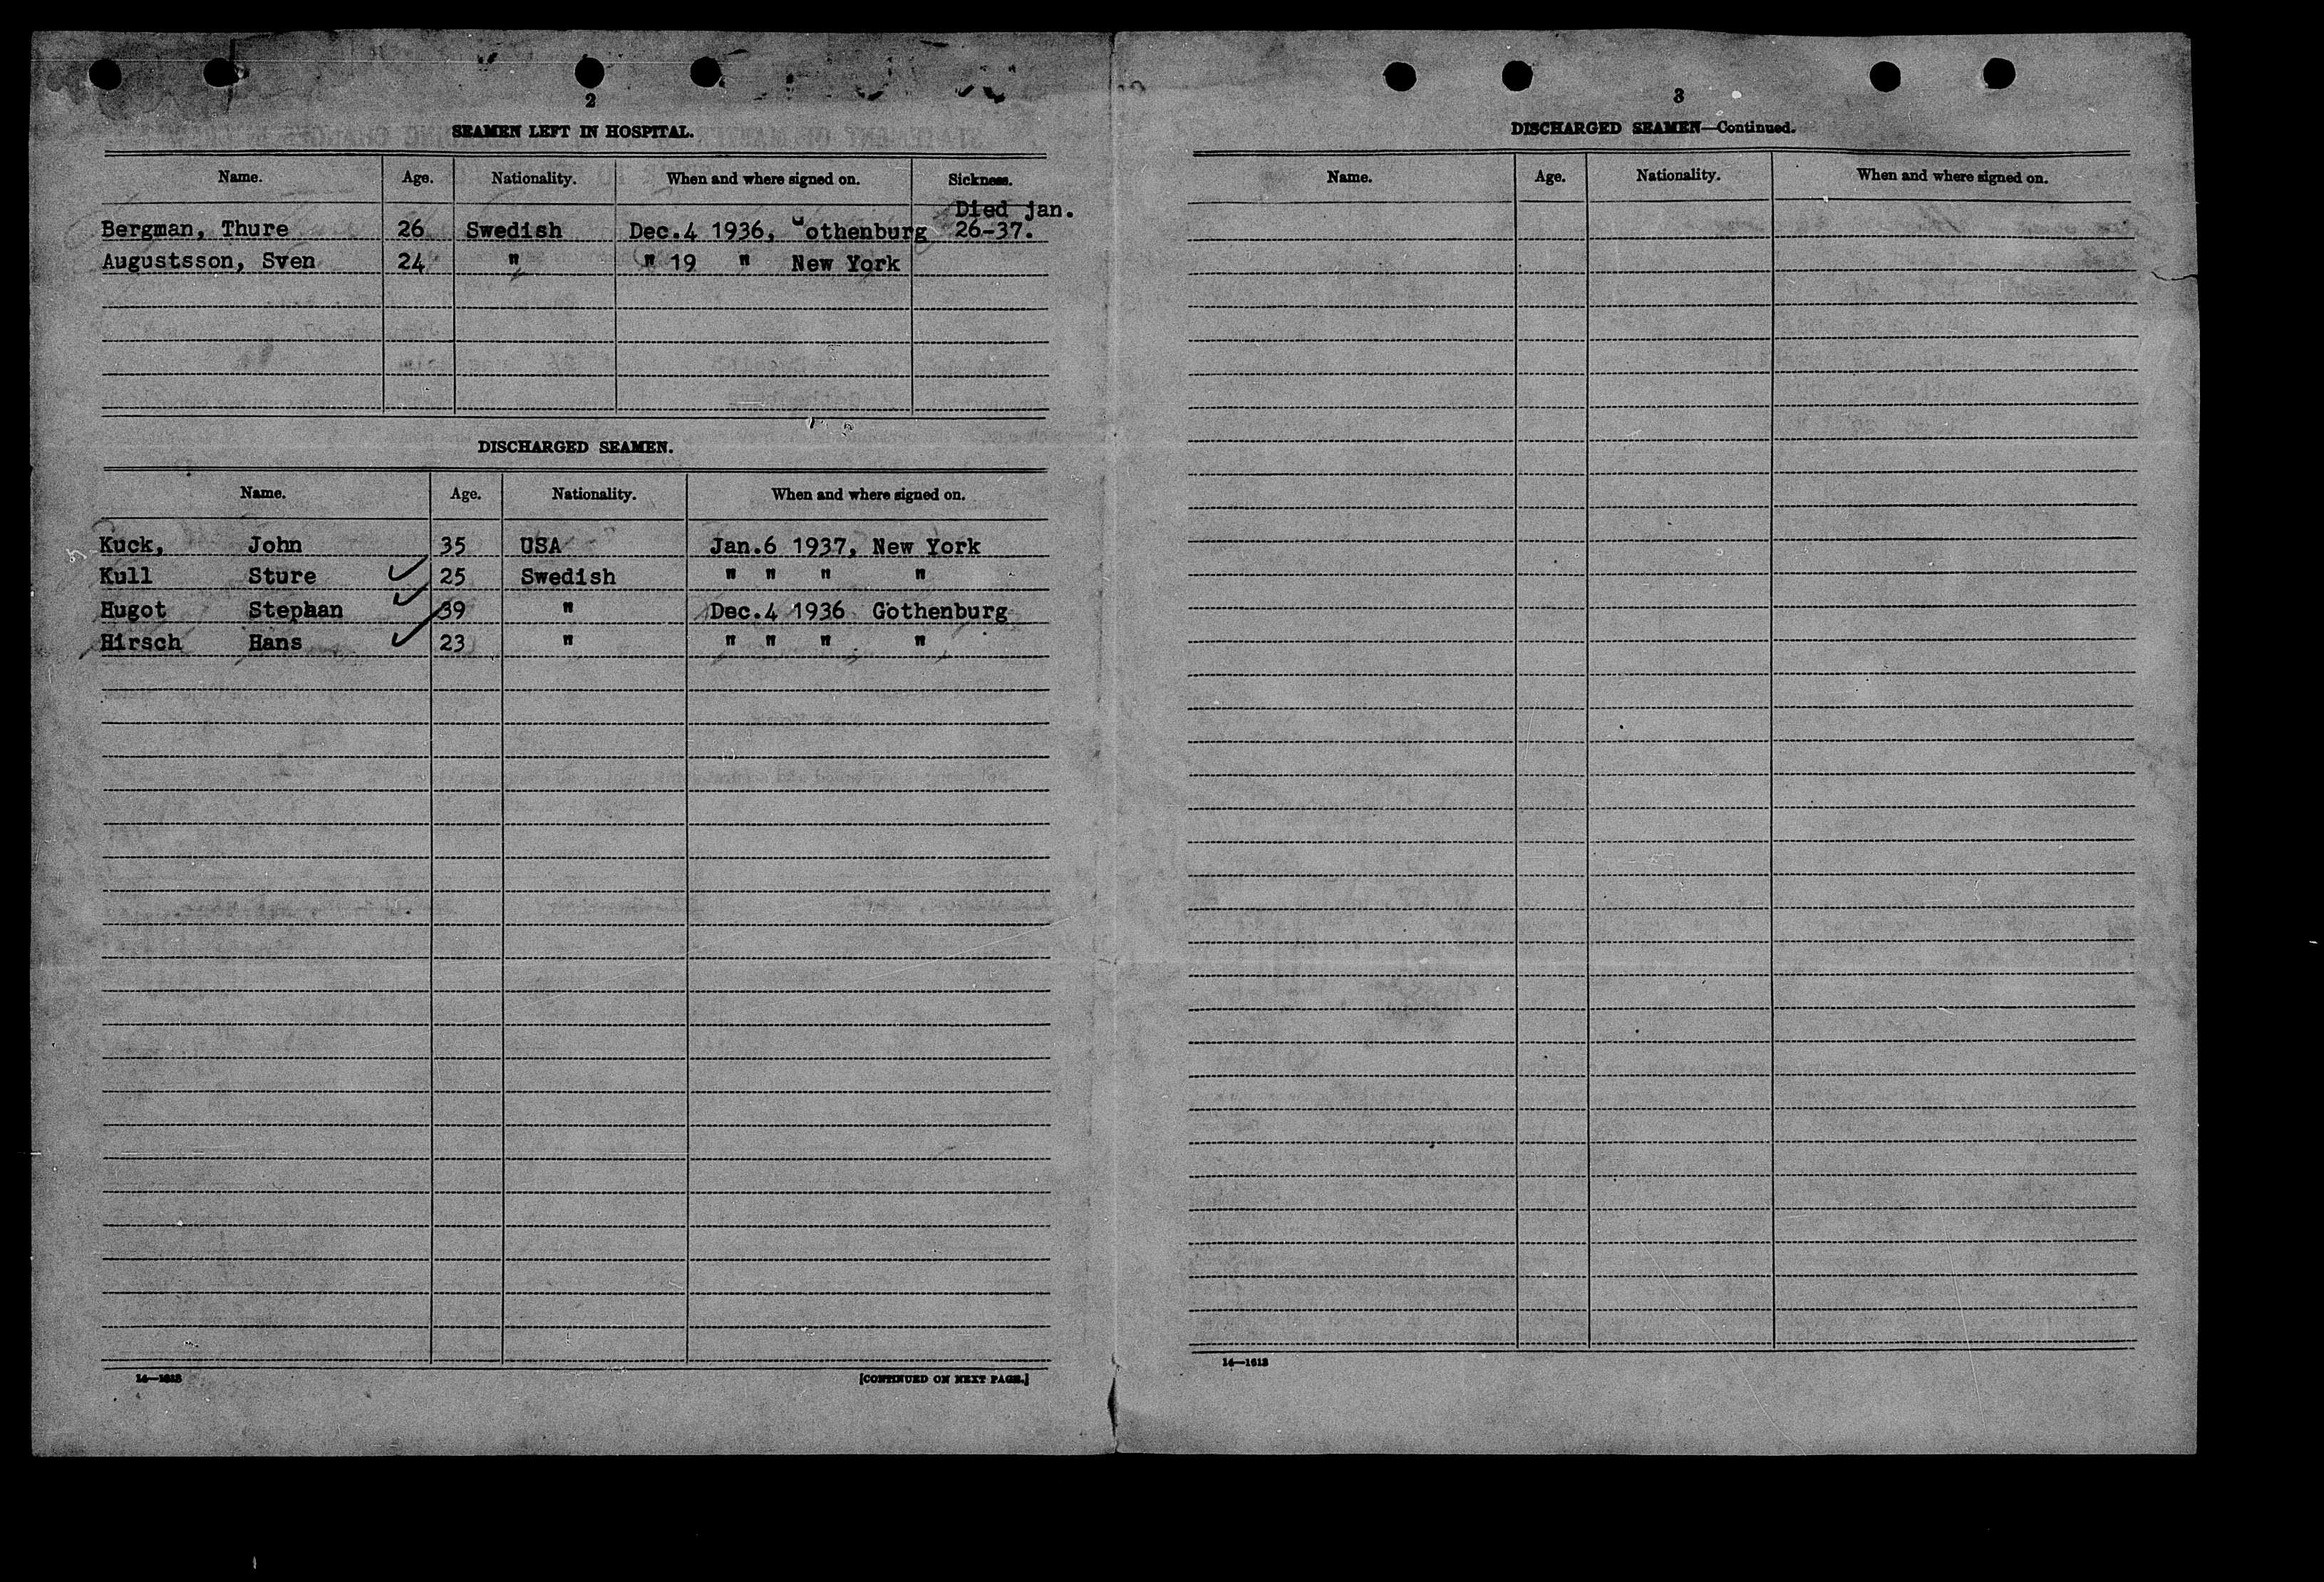 2
SEAMEN LEFT IN HOSPITAL.
Name. Age. Nationality. When and where signed on. Sickness.
Died jan.
Bergman, Thure 26 Swedish Dec.4 1936, Gothenburg 26-37.
Augustsson, Sven 24 " " 19 " New York
DISCHARGED SEAMEN.
Name. Age. Nationality. When and where signed on.
Kuck, John 35 USA Jan.6 1937, New York
Kull Sture 25 Swedish " " " "
Hugot Stephan 39 " Dec.4 1936 Gothenburg
Hirsch Hans 23 " " " " "
14—1613
[CONTINUED ON NEXT PAGE.]
3
DISCHARGED SEAMEN—Continued.
Name. Age. Nationality. When and where signed on.
14—1613